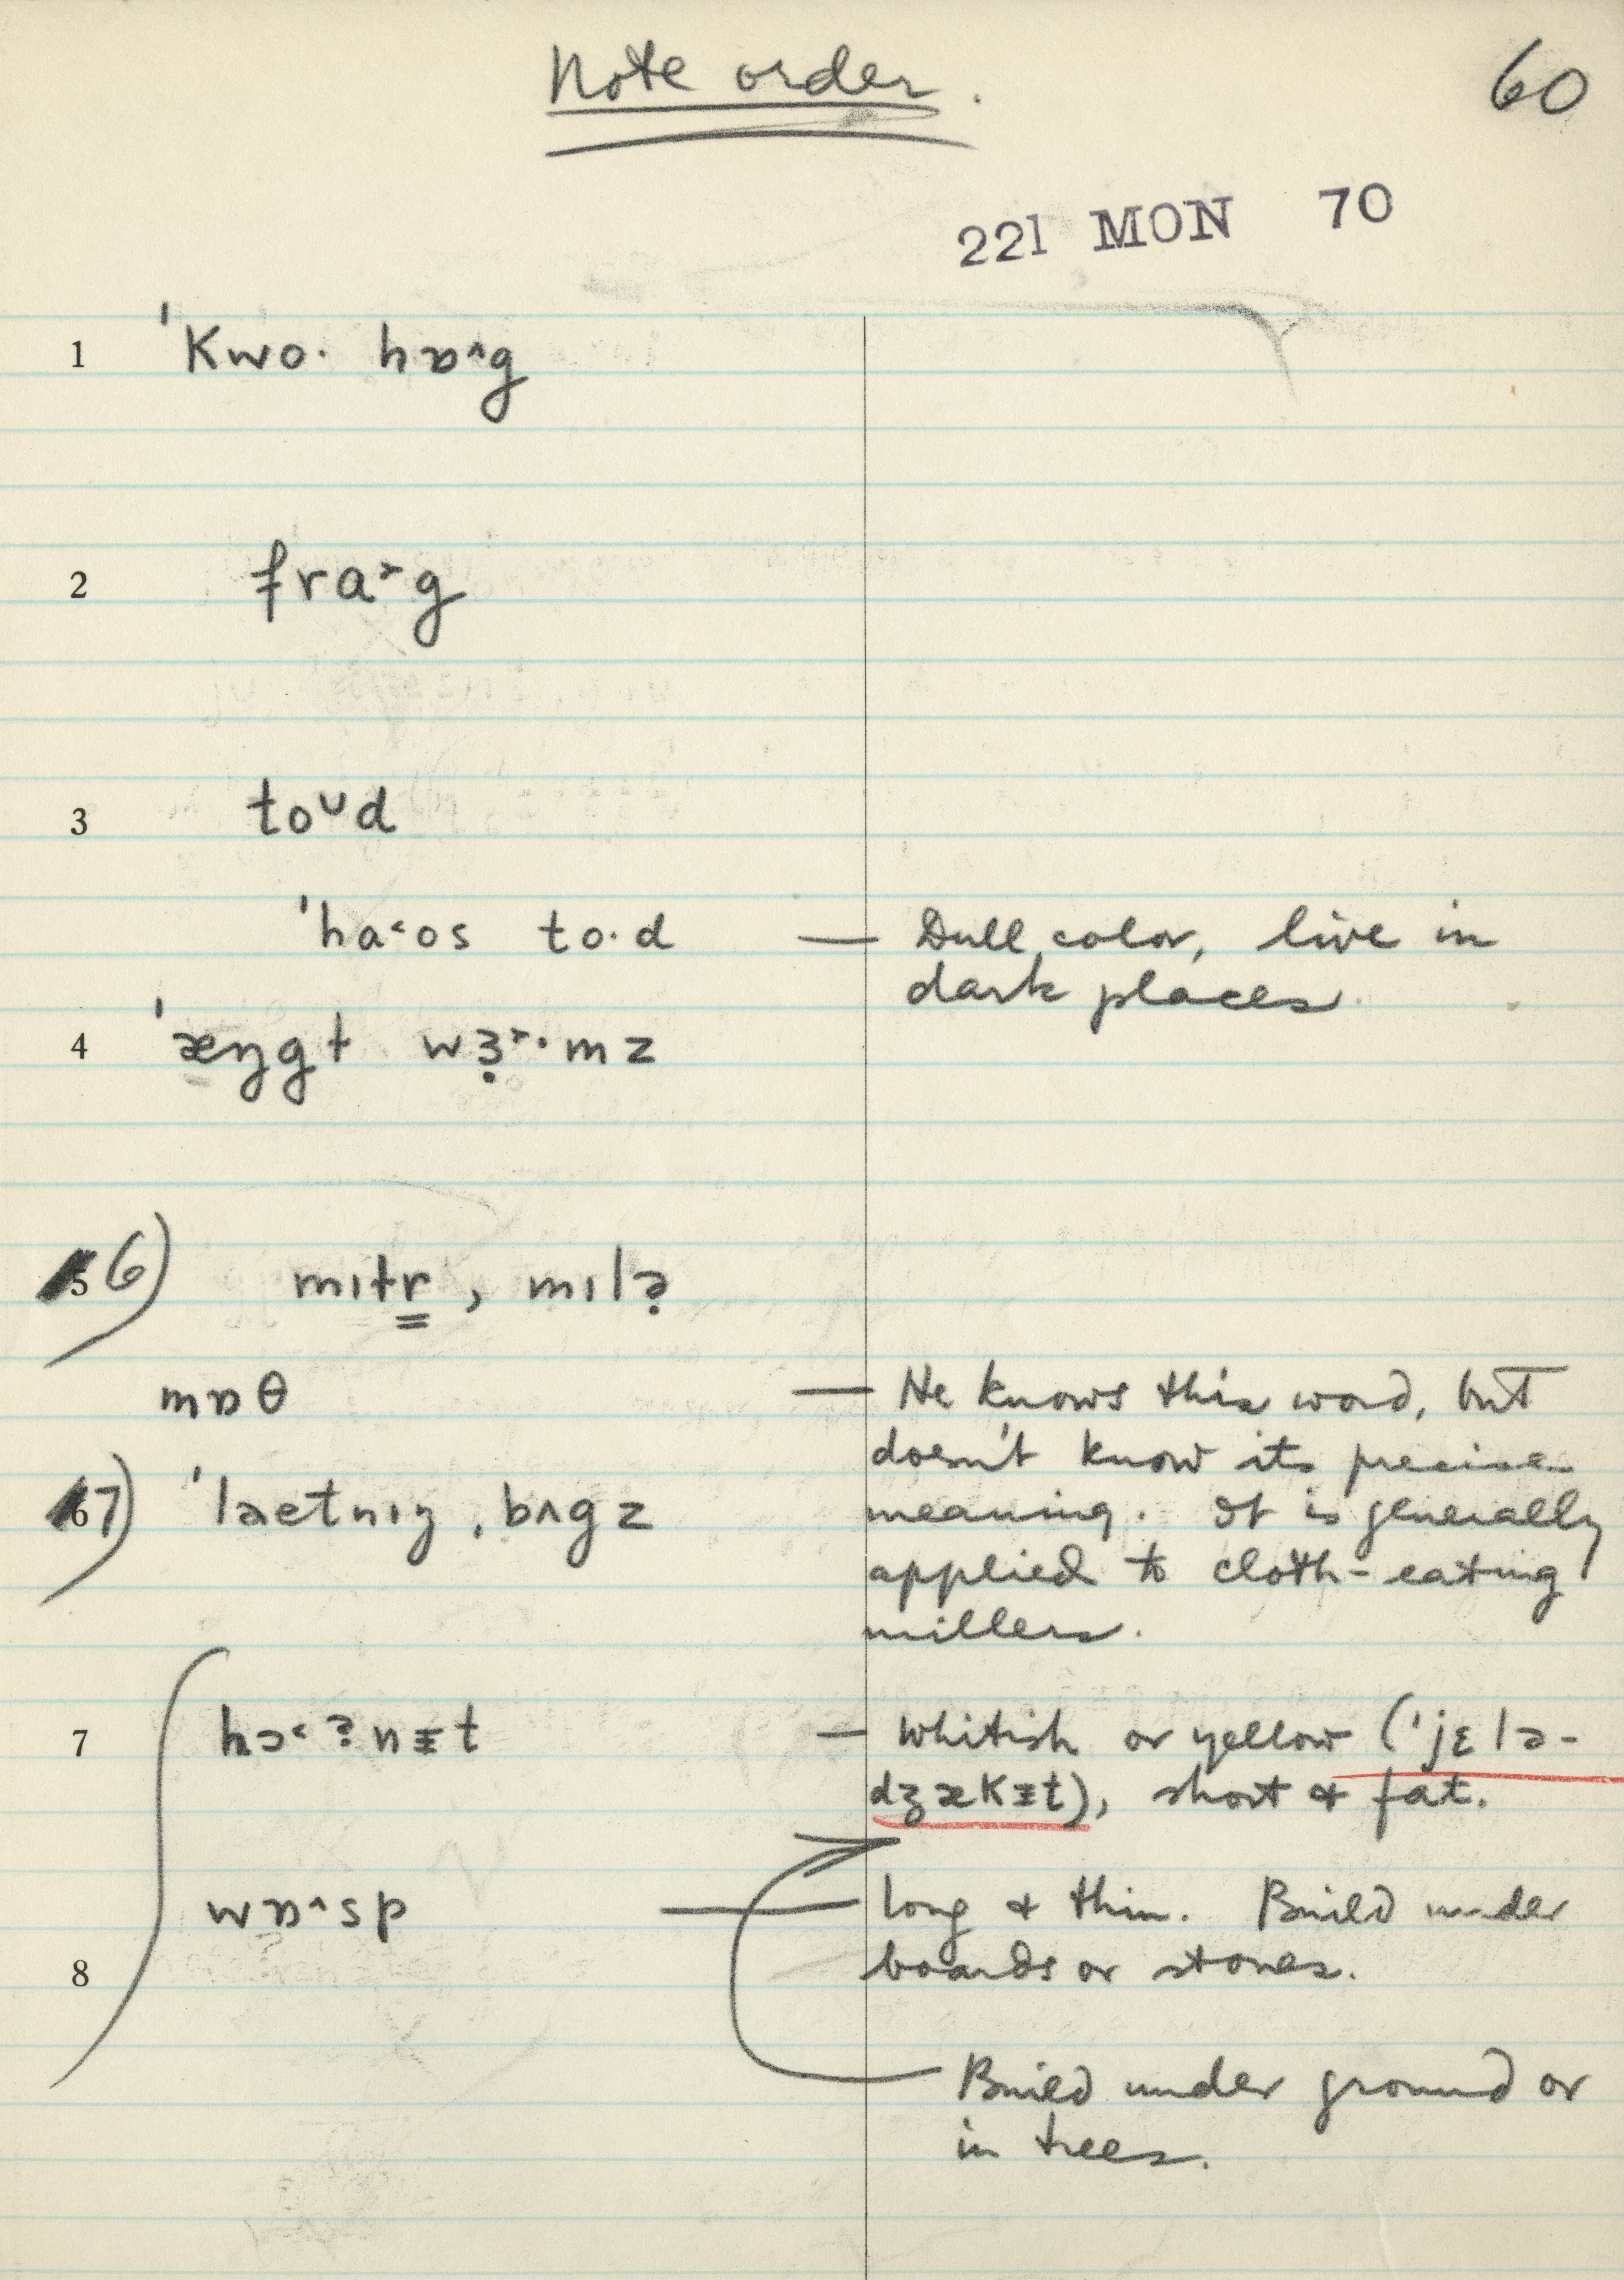 Note order.
60
221 MON 70
1 'Kwo· hɒ^g
2 fra˃g
3 toᴜd
'ha˂os to·d — Dull color, live in
dark places.
4 'æŋgɫ wɜ̣˃·mz
5 6) mɪɫr̳, mɪlə̣
mɒθ — He knows this word, but
doesn't know its precise
6 7) 'laetnɪŋ ˌbʌgz meaning. It is generally
applied to cloth-eating
millers.
7 hɔ˂ʔnɪt — Whitish or yellow ('jɛlə-
dʒækɪt), short & fat.
wɒ^sp — long & thin. Build under
8 boards or stones.
Build under ground or
in trees.